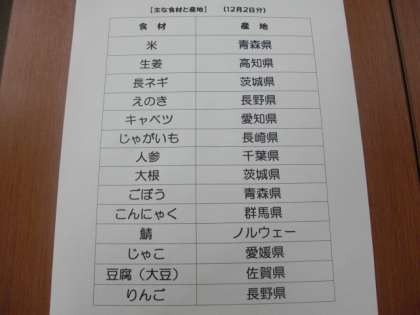 【主な食材と産地】 (12月2日分)
食材 産地
米 青森県
生姜 高知県
長ネギ 茨城県
えのき 長野県
キャベツ 愛知県
じゃがいも 長崎県
人参 千葉県
大根 茨城県
ごぼう 青森県
こんにゃく 群馬県
鯖 ノルウェー
じゃこ 愛媛県
豆腐（大豆） 佐賀県
りんご 長野県